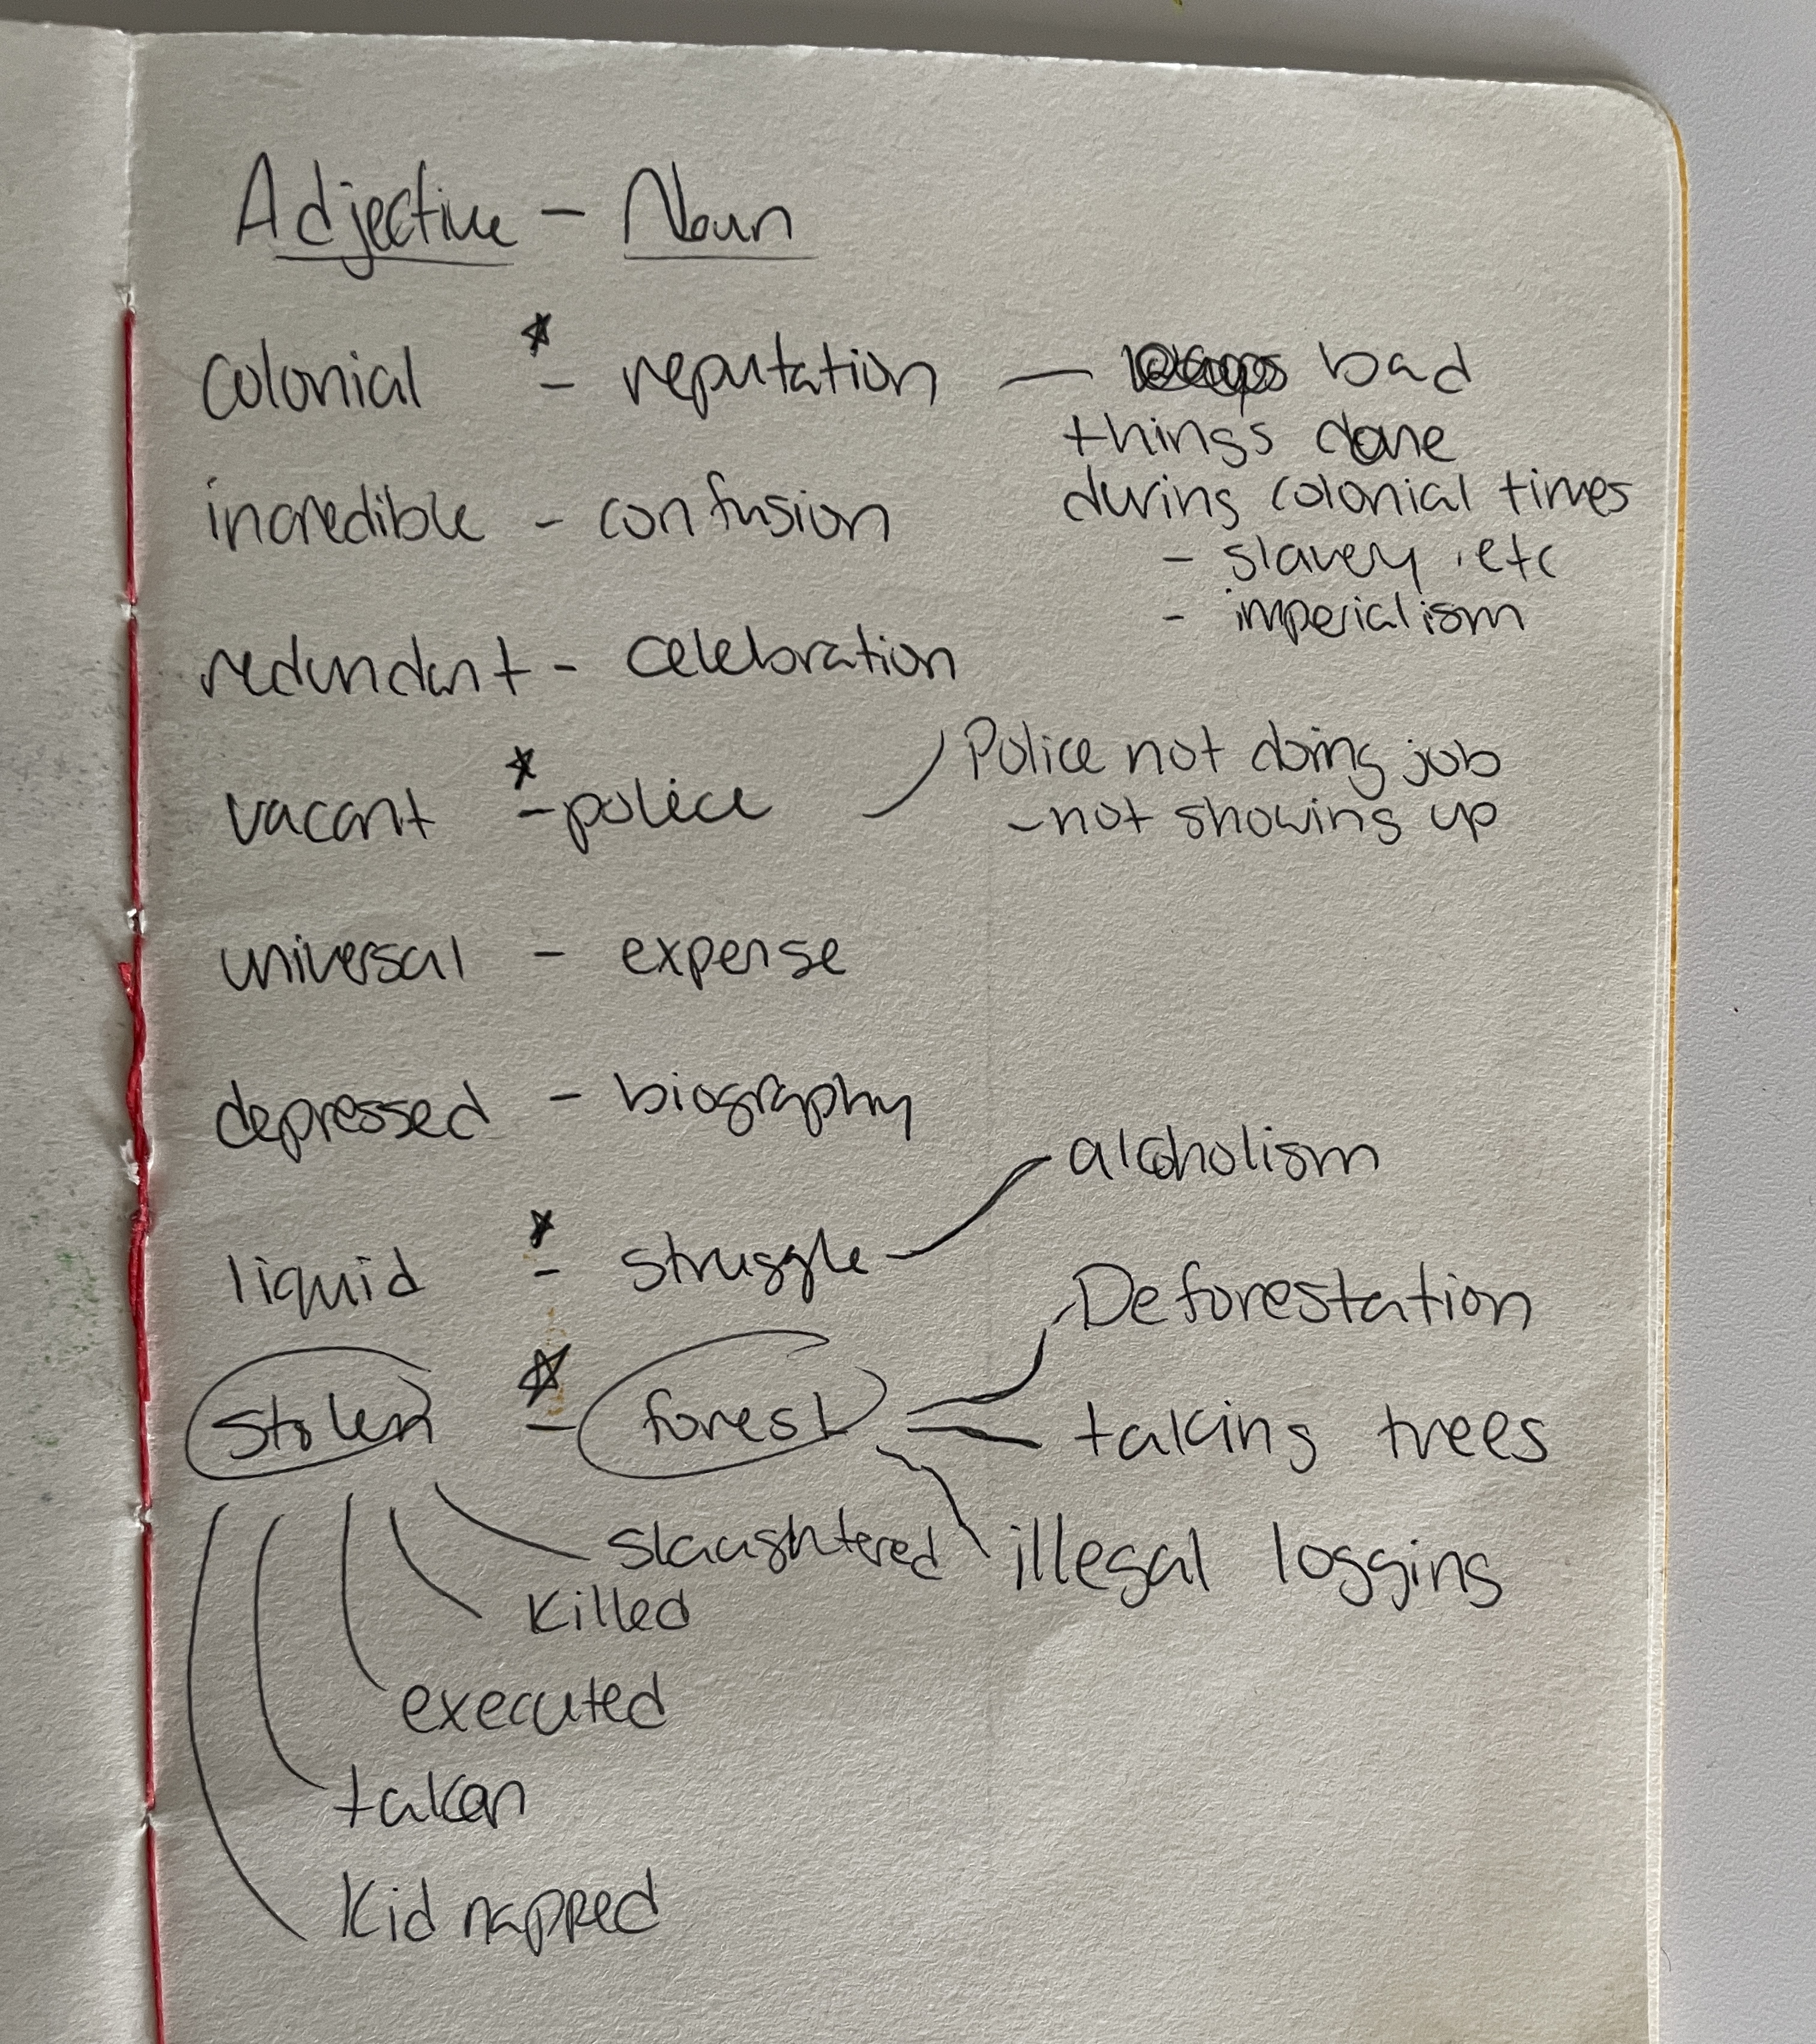 Adjective - Noun
colonial - reputation — bad
things done
during colonial times
- slavery, etc
- imperialism
incredible - confusion
redundant - celebration
vacant - police
Police not doing job
- not showing up
universal - expense
depressed - biography
liquid - struggle
alcoholism
stolen - forest
Deforestation
taking trees
illegal logging
slaughtered
killed
executed
taken
Kidnapped